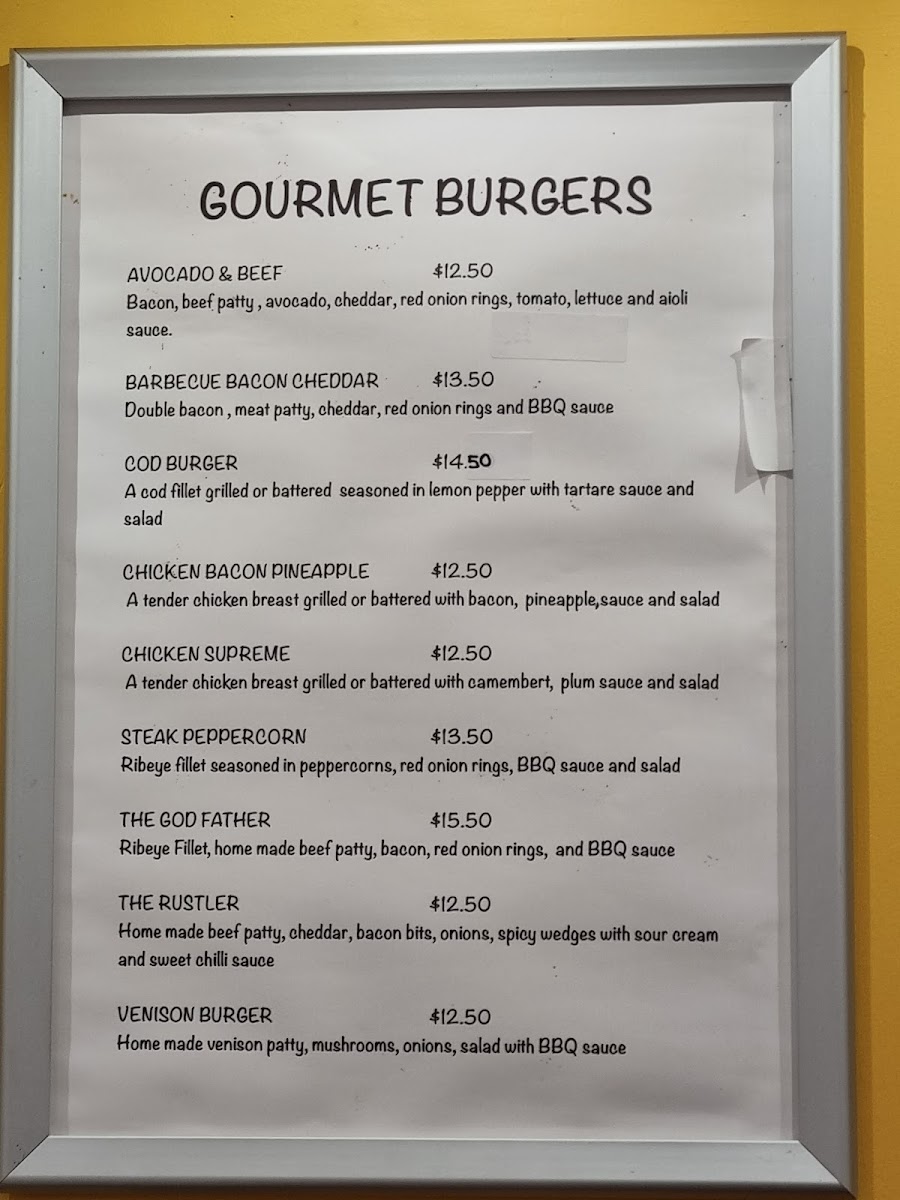 GOURMET BURGERS
AVOCADO & BEEF $12.50
Bacon, beef patty , avocado, cheddar, red onion rings, tomato, lettuce and aioli
sauce.
BARBECUE BACON CHEDDAR $13.50
Double bacon , meat patty, cheddar, red onion rings and BBQ sauce
COD BURGER $14.50
A cod fillet grilled or battered seasoned in lemon pepper with tartare sauce and
salad
CHICKEN BACON PINEAPPLE $12.50
A tender chicken breast grilled or battered with bacon, pineapple,sauce and salad
CHICKEN SUPREME $12.50
A tender chicken breast grilled or battered with camembert, plum sauce and salad
STEAK PEPPERCORN $13.50
Ribeye fillet seasoned in peppercorns, red onion rings, BBQ sauce and salad
THE GOD FATHER $15.50
Ribeye Fillet, home made beef patty, bacon, red onion rings, and BBQ sauce
THE RUSTLER $12.50
Home made beef patty, cheddar, bacon bits, onions, spicy wedges with sour cream
and sweet chilli sauce
VENISON BURGER $12.50
Home made venison patty, mushrooms, onions, salad with BBQ sauce